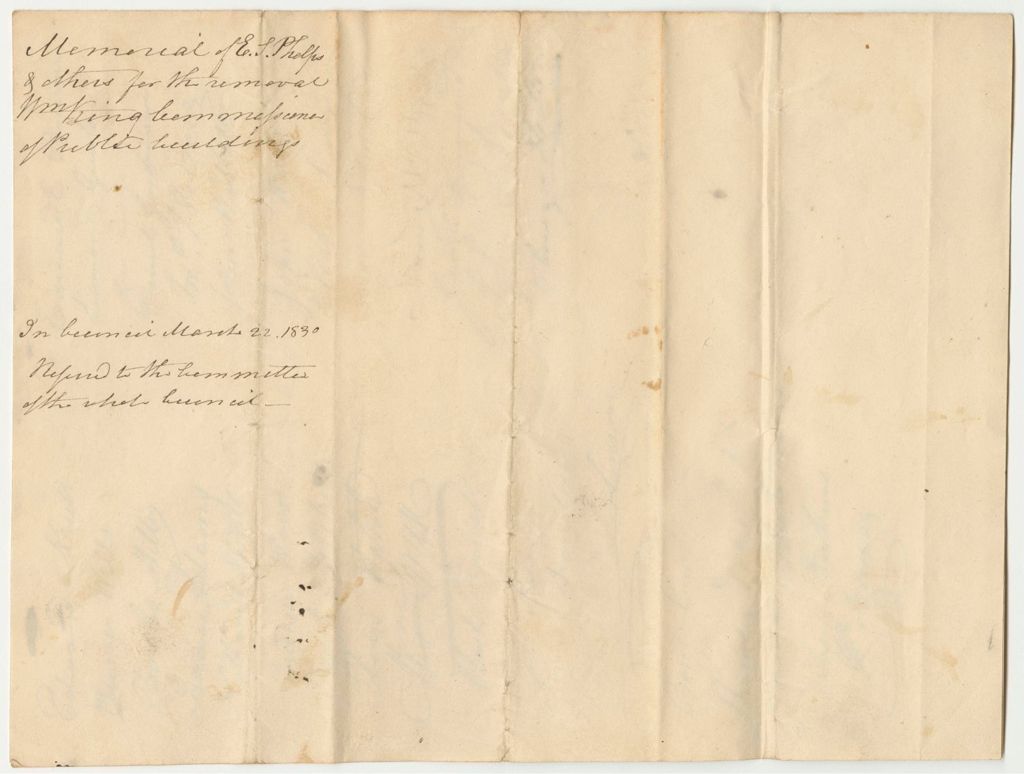 Memorial of E. S. Phelps
& others for the removal
Wm King Commissioner
of Public buildings
In Council March 22. 1830
Referred to the Committee
of the whole Council —